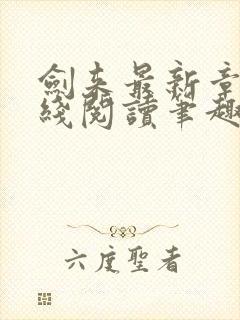 劍来最新章
綫閱讀筆趣
六度聖者